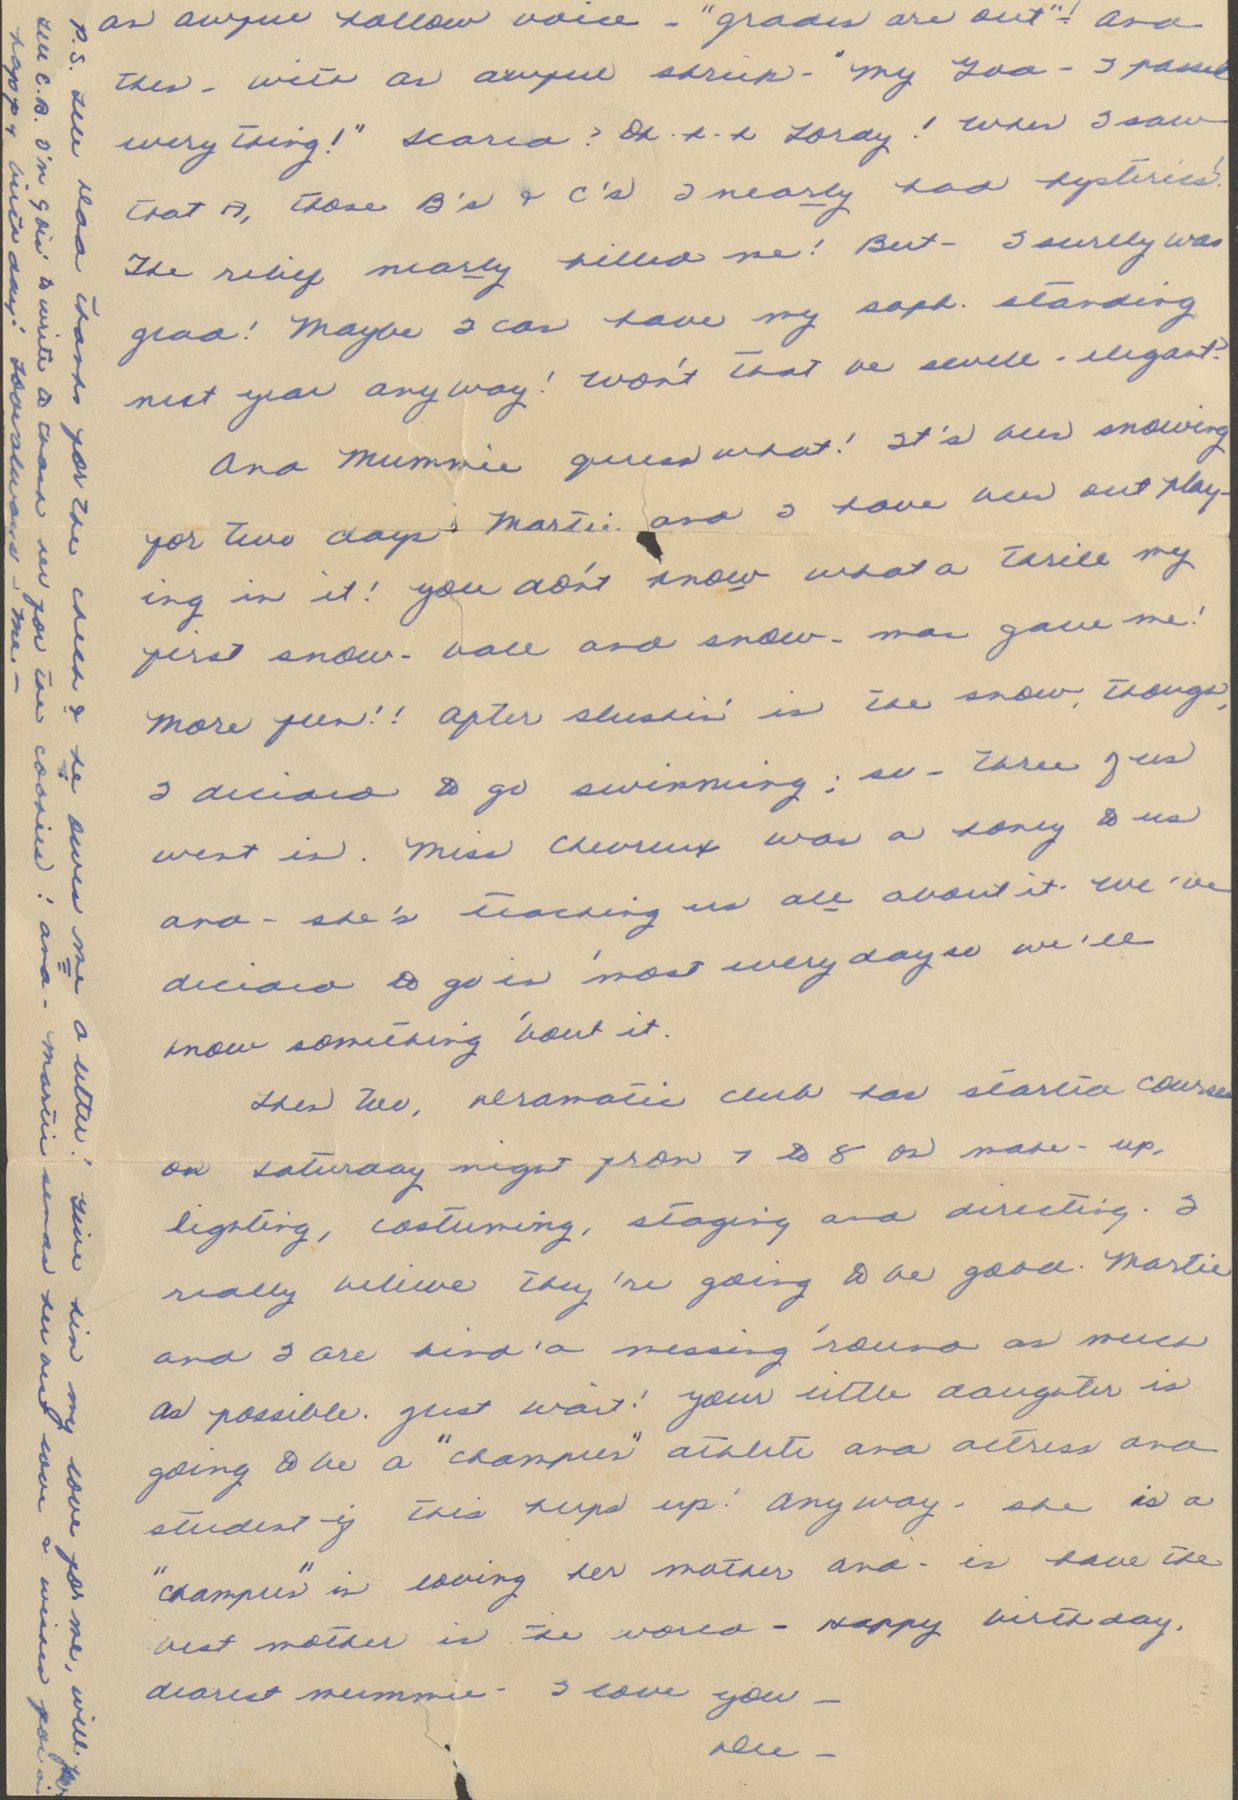 an awful hollow voice - "grades are out"! And
then - with an awful shriek - "My God - I passed
everything!" Scared? Oh-h-h Lordy! When I saw
that A, those B's & C's I nearly had hysterics!
The relief nearly killed me! But - I surely was
glad! Maybe I can have my soph. standing
next year anyway! Won't that be swell-elegant?
And Mummie guess what! It's been snowing
for two days! Martie and I have been out play-
ing in it! You don't know what a thrill my
first snow-ball and snow-man gave me!
More fun!! After slushin' in the snow, though,
I decided to go swimming; so - three of us
went in. Miss Chevreux was a honey to us
and - she's teaching us all about it. We've
decided to go in 'most every day so we'll
know something 'bout it.
Then too, Dramatic Club has started courses
on Saturday night from 7 to 8 on make-up,
lighting, costuming, staging and directing. I
really believe they're going to be good. Martie
and I are kind'a messing 'round as much
as possible. Just wait! Your little daughter is
going to be a "champeen" athlete and actress and
student if this keeps up! Anyway - she is a
"champeen" in loving her mother and - in have the
best mother in the world - Happy birthday,
dearest mummie - I love you -
Dee -
P.S. Tell Dad thanks for the check & he owes me a letter! Give him my love for me, will
Tell C.B. I'm goin' to write to thank her for the cookies! And - Martie sends her best love & wishes for a
happy birthday! Love always - Me. -